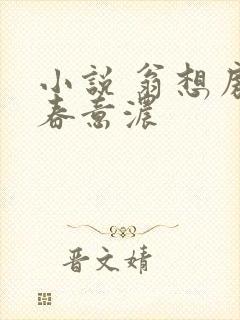 小说 翁想
春意浓
晋文婧